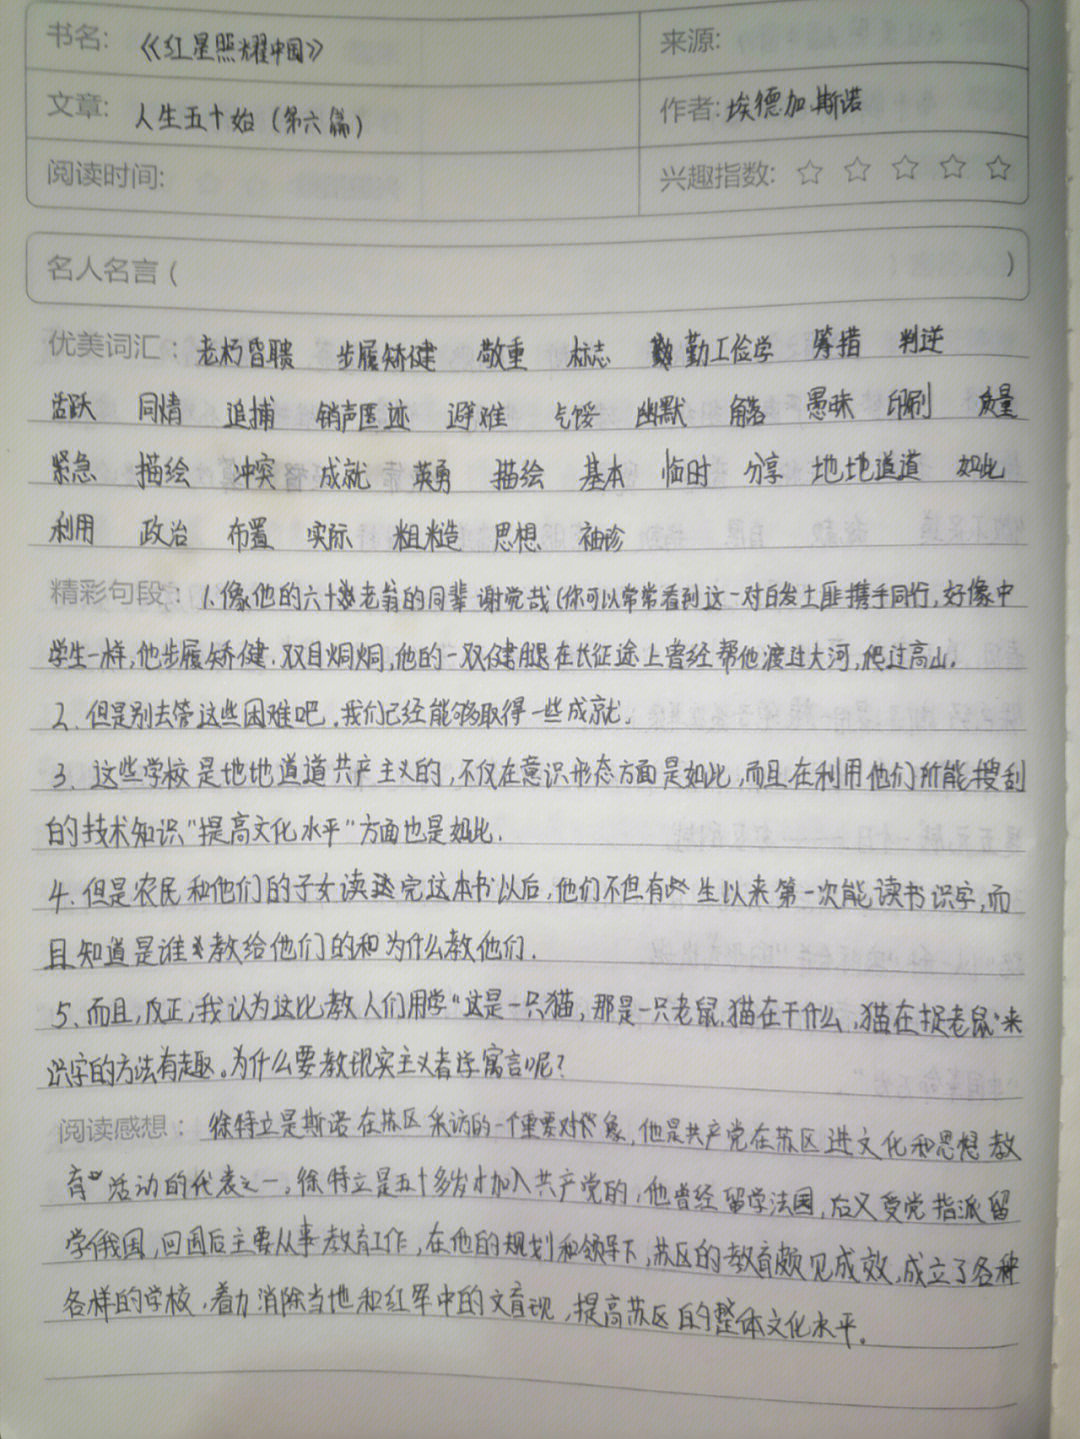 书名: 《红星照耀中国》
来源:
文章: 人生五十始（第六篇）
作者: 埃德加.斯诺
阅读时间:
兴趣指数: ☆ ☆ ☆ ☆ ☆
名人名言 ( )
优美词汇: 老朽昏聩 步履矫健 敬重 标志 勤工俭学 筹措 判逆
活跃 同情 追捕 销声匿迹 避难 气馁 幽默 解答 愚昧 印刷 质量
紧急 描绘 冲突 成就 英勇 描绘 基本 临时 分享 地地道道 如此
利用 政治 布置 实际 粗糙 思想 袖珍
精彩句段: 1.像他的六十老翁的同辈谢觉哉(你可以常常看到这一对白发土匪携手同行,好像中
学生一样,他步履矫健.双目炯炯,他的一双健腿在长征途上曾经帮他渡过大河,爬过高山.
2.但是别去管这些困难吧.我们已经能够取得一些成就.
3.这些学校是地地道道共产主义的,不仅在意识形态方面是如此,而且在利用他们所能搜刮
的技术知识"提高文化水平"方面也是如此.
4.但是农民和他们的子女读完这本书以后,他们不但有生以来第一次能读书识字,而
且知道是谁教给他们的和为什么教他们.
5.而且,反正,我认为这比教人们用学"这是一只猫,那是一只老鼠.猫在干什么,猫在捉老鼠"来
识字的方法有趣。为什么要教现实主义者学寓言呢?
阅读感想: 徐特立是斯诺在苏区采访的一个重要对象,他是共产党在苏区进文化和思想教
育活动的代表之一。徐特立是五十多岁才加入共产党的,他曾经留学法国,后又受党指派留
学俄国,回国后主要从事教育工作,在他的规划和领导下,苏区的教育颇见成效,成立了各种
各样的学校,着力消除当地和红军中的文盲现,提高苏区的整体文化水平。